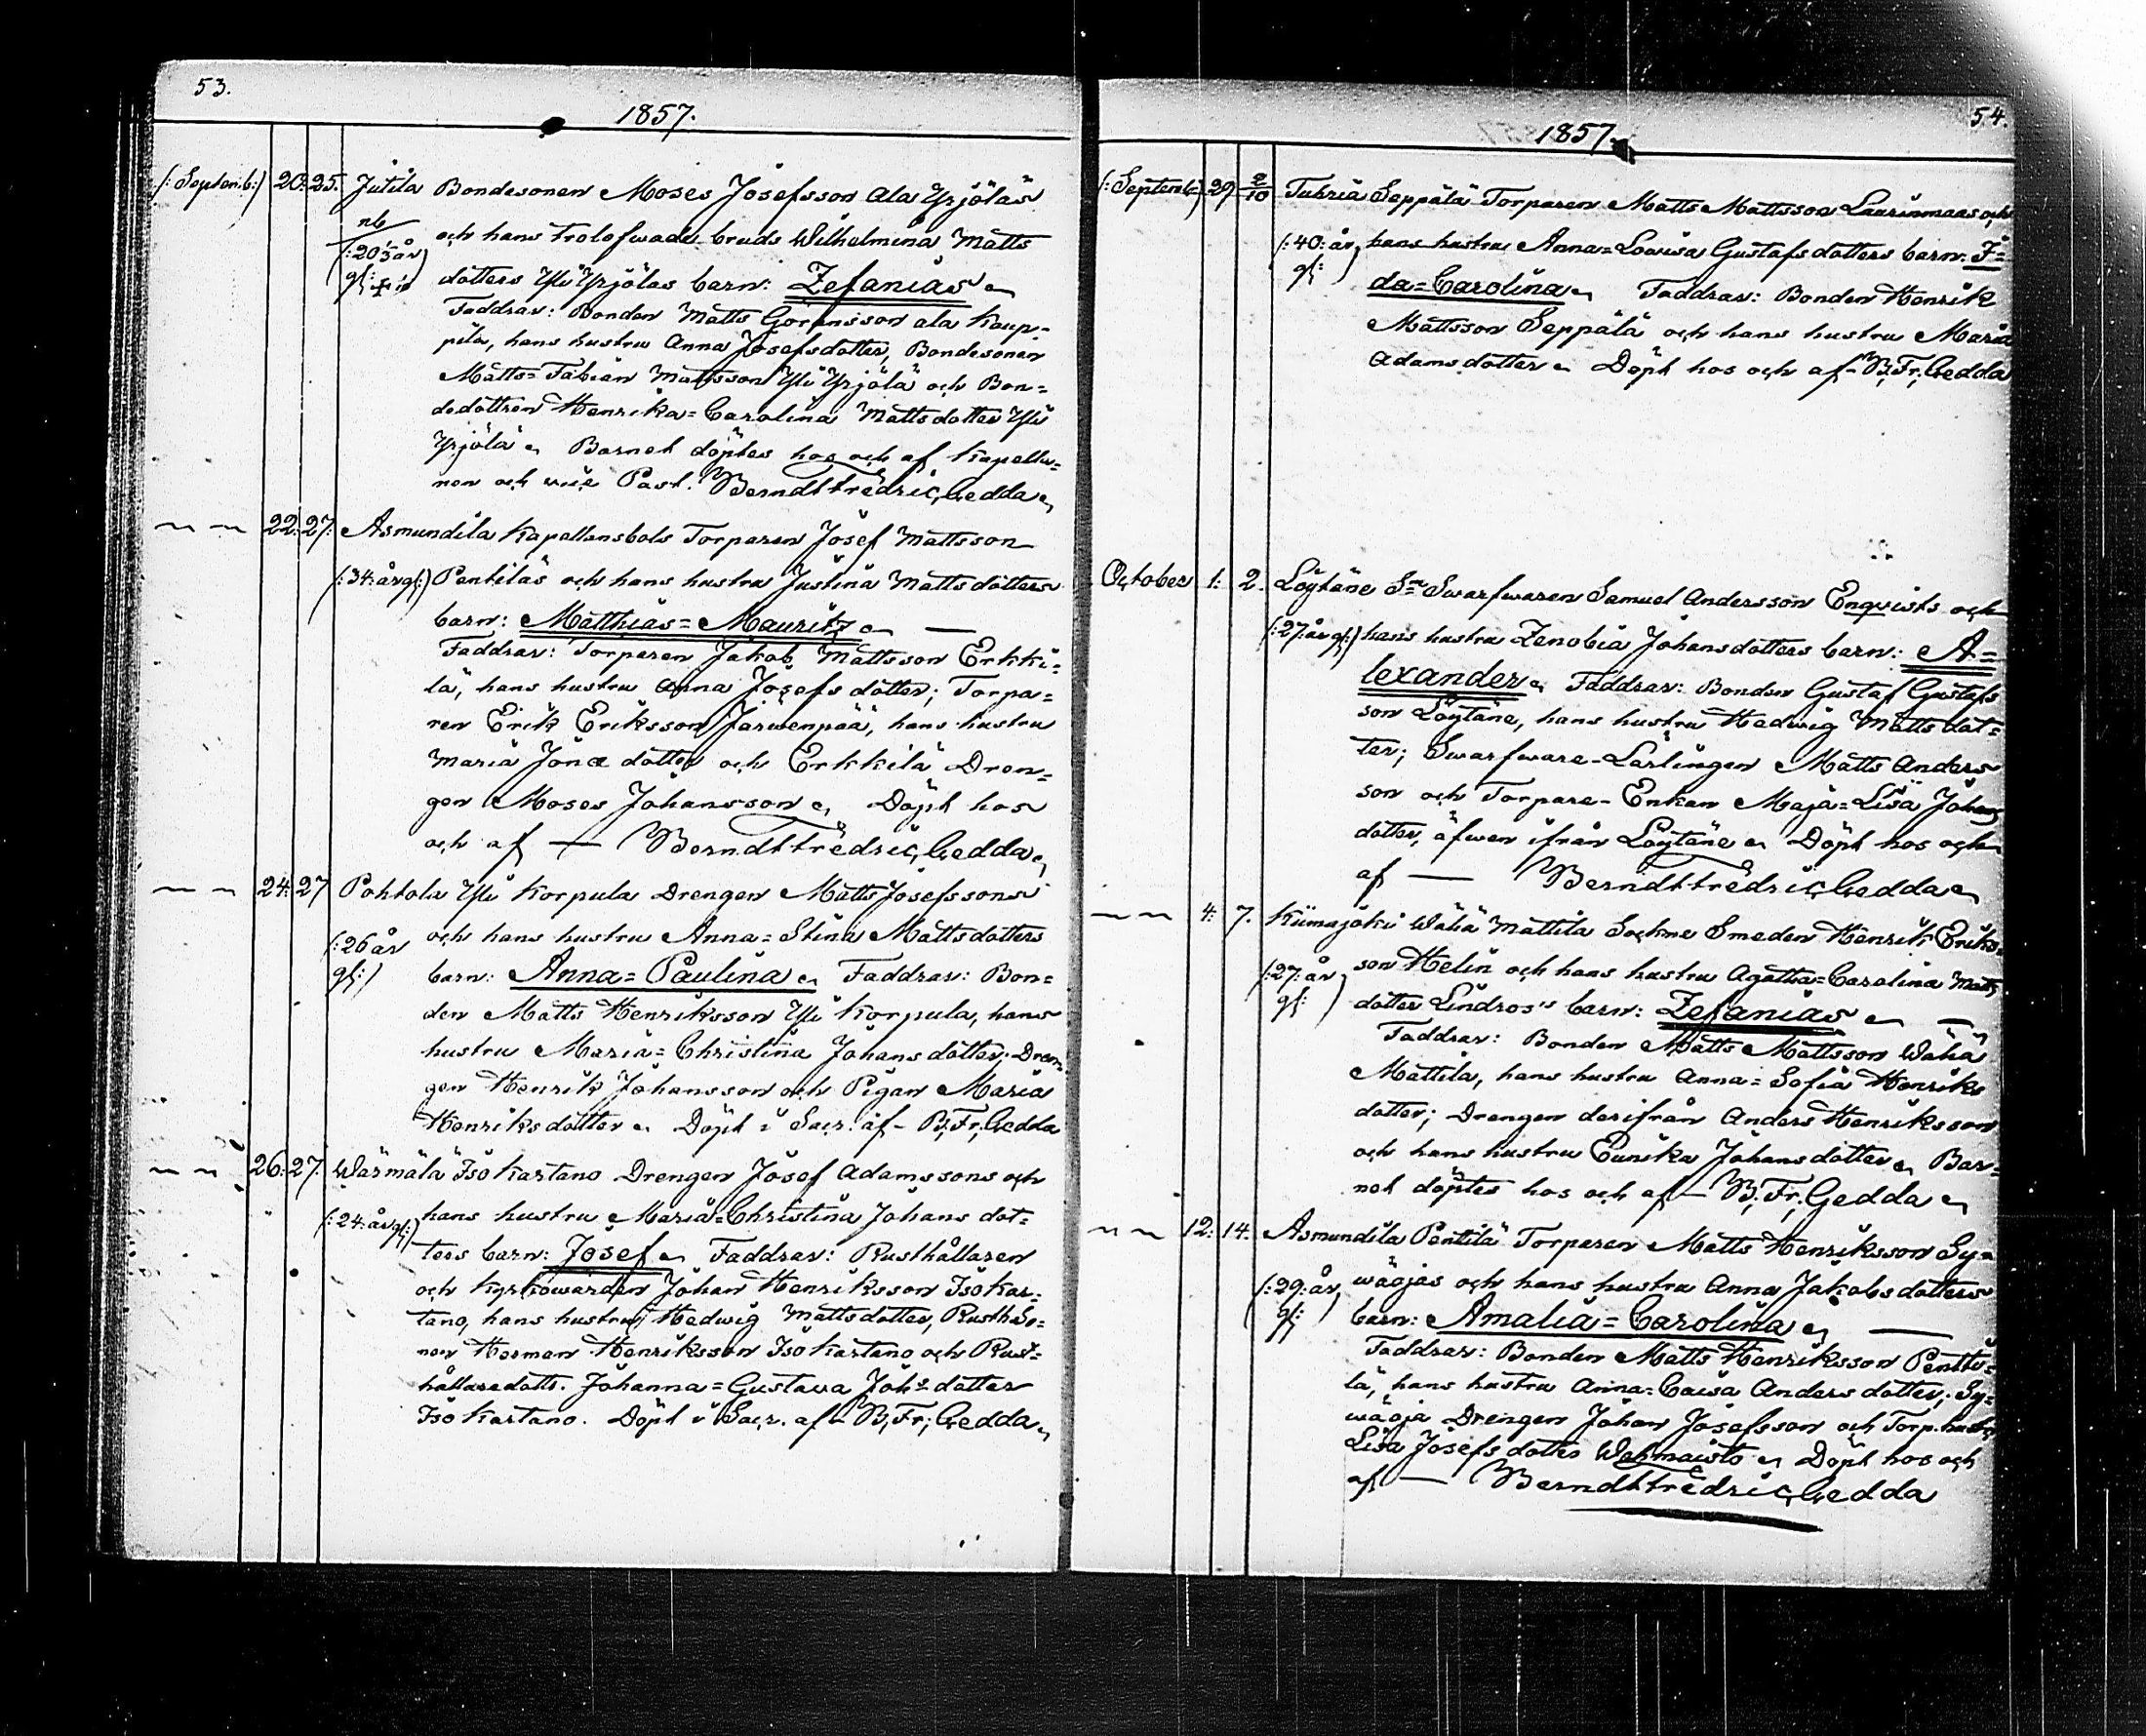 53.
1857.
/: Septemb:/ 20. 25. Jutila Bondesonen Moses Josefsson Ala Yrjöläs
nb
/: 20 5/12 år gl: + :/
och hans trolofwade bruds Wilhelmina Matts
dotters Yli Yrjölas barn: Zefanias
Faddrar: Bonden Matts Göransson ala Kaup-
pila, hans hustru Anna Josefsdotter, Bondesonen
Matts=Fabian Mattsson Yli Yrjölä och Bon=
dedottren Henrika=Carolina Mattsdotter Yli
Yrjölä. Barnet döptes hos och af Kapella=
nen och vice Past. Berndt Fredric Gedda
— — 22. 27. Asmundila Kapellansbols Torparen Josef Mattsson
/: 34: år gl:/ Pentiläs och hans hustru Justina Mattsdotters
barn: Matthias=Mauritz —
Faddrar: Torparen Jakob Mattsson Erkki=
lä, hans hustru Anna Josefsdotter; Torpa=
ren Erik Eriksson Järwenpää, hans hustru
Maria Jonæ dotter och Erkkilä Dren=
gen Moses Johansson. Döpt hos
och af — Berndt Fredric Gedda
— — 24: 27 Pohtola Yli Korpula Drengen Matts Josefssons
/: 26 år gl:/ och hans hustru Anna=Stina Mattsdotters
barn: Anna=Paulina. Faddrar: Bon=
den Matts Henriksson Yli Korpula, hans
hustru Maria=Christina Johansdotter; Dren=
gen Henrik Johansson och Pigan Maria
Henriksdotter. Döpt i Sacr. af — B, Fr, Gedda
— — 26: 27. Wärmälä Iso Kartano Drengen Josef Adamssons och
/: 24: år gl:/ hans hustru Maria=Christina Johans dot=
ters barn: Josef. Faddrar: Rusthållaren
och Kyrkowärden Johan Henriksson Iso Kar=
tano, hans hustru Hedwig Mattsdotter, Rusth. So=
nen Herman Henriksson Iso Kartano och Rust=
hållaredott. Johanna=Gustava Johs dotter
Iso Kartano. Döpt i Sacr. af — B, Fr, Gedda
54.
1857.
/: Septemb:/ 29 2/10 Tuhria Seppälä Torparen Matts Mattsson Laurinmaas och
/: 40: år gl: / hans hustru Anna=Lovisa Gustafsdotters barn: I=
da=Carolina. Faddrar: Bonden Henrik
Mattsson Seppälä och hans hustru Maria
Adamsdotter. Döpt hos och af — B, Fr, Gedda
October 1: 2. Löytäne Sn Swarfwaren Samuel Andersson Enqvists och
/: 27: år gl:/ hans hustru Zenobia Johansdotters barn: A=
lexander. Faddrar: Bonden Gustaf Gustafs
son Löytäne, hans hustru Hedwig Matts dot=
ter; Swarfware-Lärlingen Matts Anders
son och Torpare-Enkan Maja=Lisa Johans
dotter, äfwen ifrån Löytäne. Döpt hos och
af — Berndt Fredric Gedda
— — 4: 7. Kiimajoki Wähä Mattila Sockne Smeden Henrik Eriks=
/: 27: år gl: / son Helin och hans hustru Agatha=Carolina Matts
dotter Lindros's barn: Zefanias —
Faddrar: Bonden Matts Mattsson Wähä
Mattila, hans hustru Anna=Sofia Henriks
dotter; Drengen derifrån Anders Henriksson
och hans hustru Eunika Johansdotter. Bar=
net döptes hos och af — B, Fr, Gedda
— — 12: 14. Asmundila Pentilä Torparen Matts Henriksson Sy=
/: 29: år gl: / wäojas och hans hustru Anna Jakobsdotters
barn: Amalia=Carolina —
Faddrar: Bonden Matts Henriksson Penti=
lä, hans hustru Anna=Caisa Andersdotter; Sy=
wäoja Drengen Johan Josefsson och Torp. hustr.
Lisa Josefsdotter Wahmaisto. Döpt hos och
af — Berndt Fredric Gedda